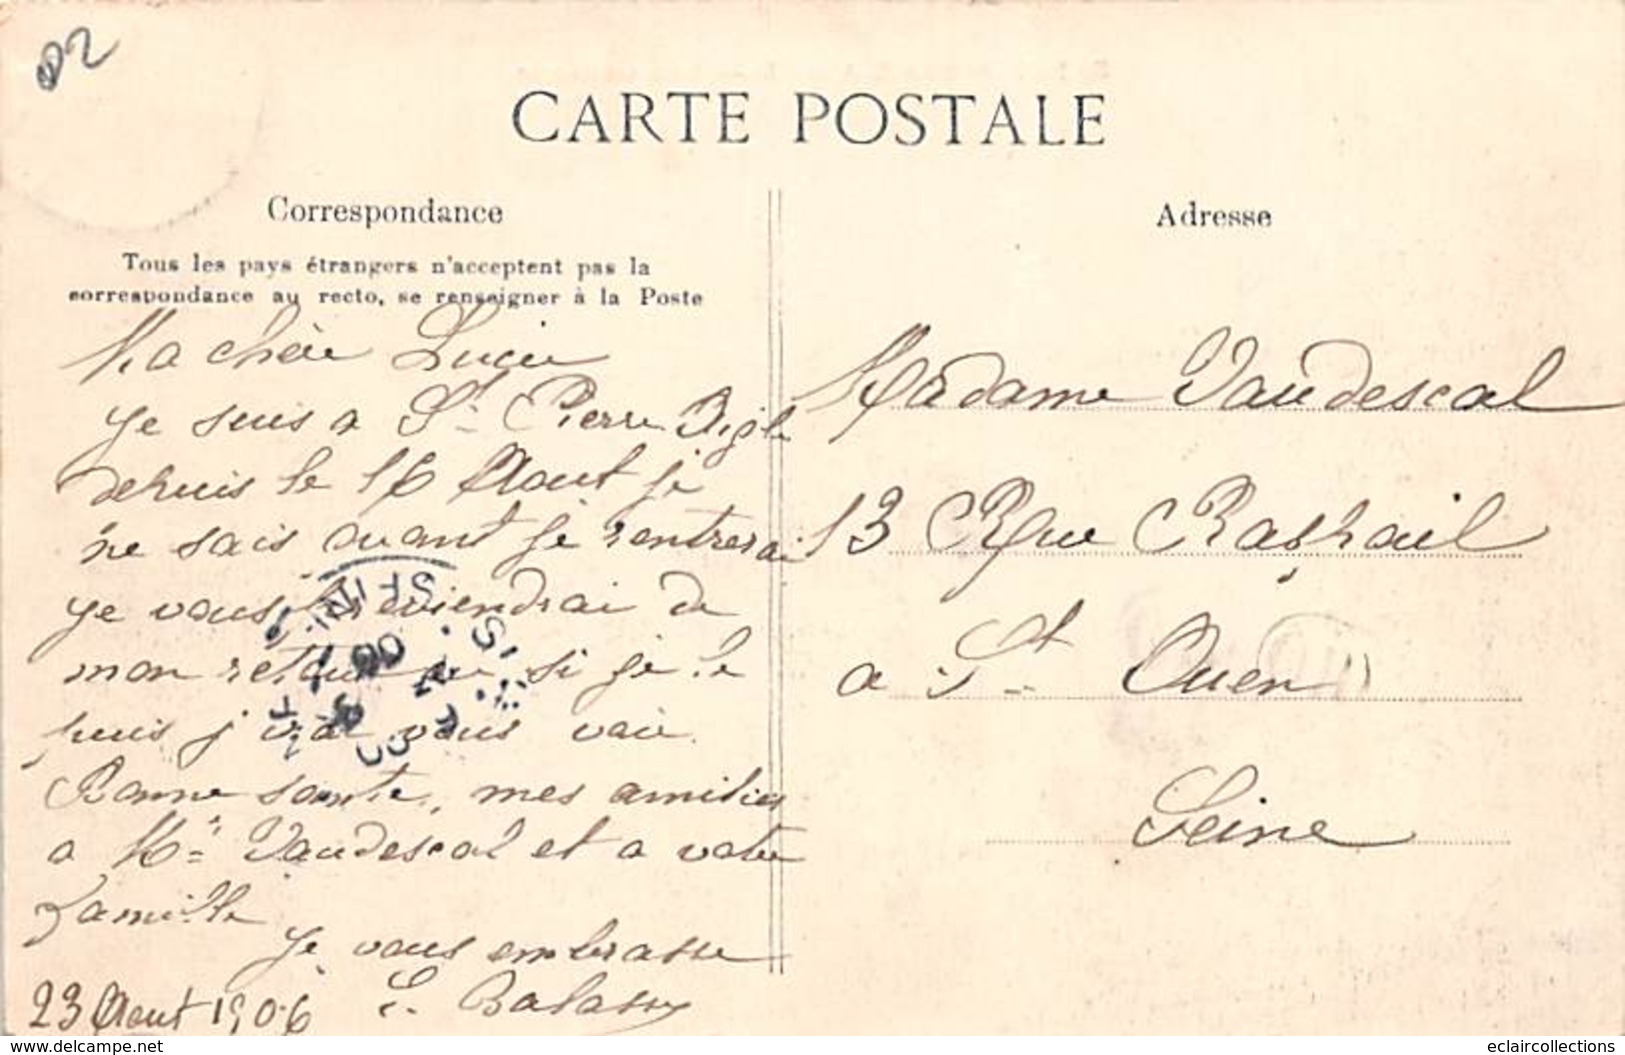 D2
CARTE POSTALE
Correspondance
Tous les pays étrangers n'acceptent pas la
correspondance au recto, se renseigner à la Poste
Ma chère Lucie
je suis a St Pierre Bigle
depuis le 16 Aout je
ne sais quant je rentrerai
je vous previendrai de
mon retour si je le
puis j'irai vous voir
Bonne sante, mes amitiés
a Mr Vaudescal et a votre
famille
je vous embrasse
23 Aout 1906
Adresse
Madame Vaudescal
13 Rue Raspail
a St Ouen
Seine
www.delcampe.net
eclaircollections